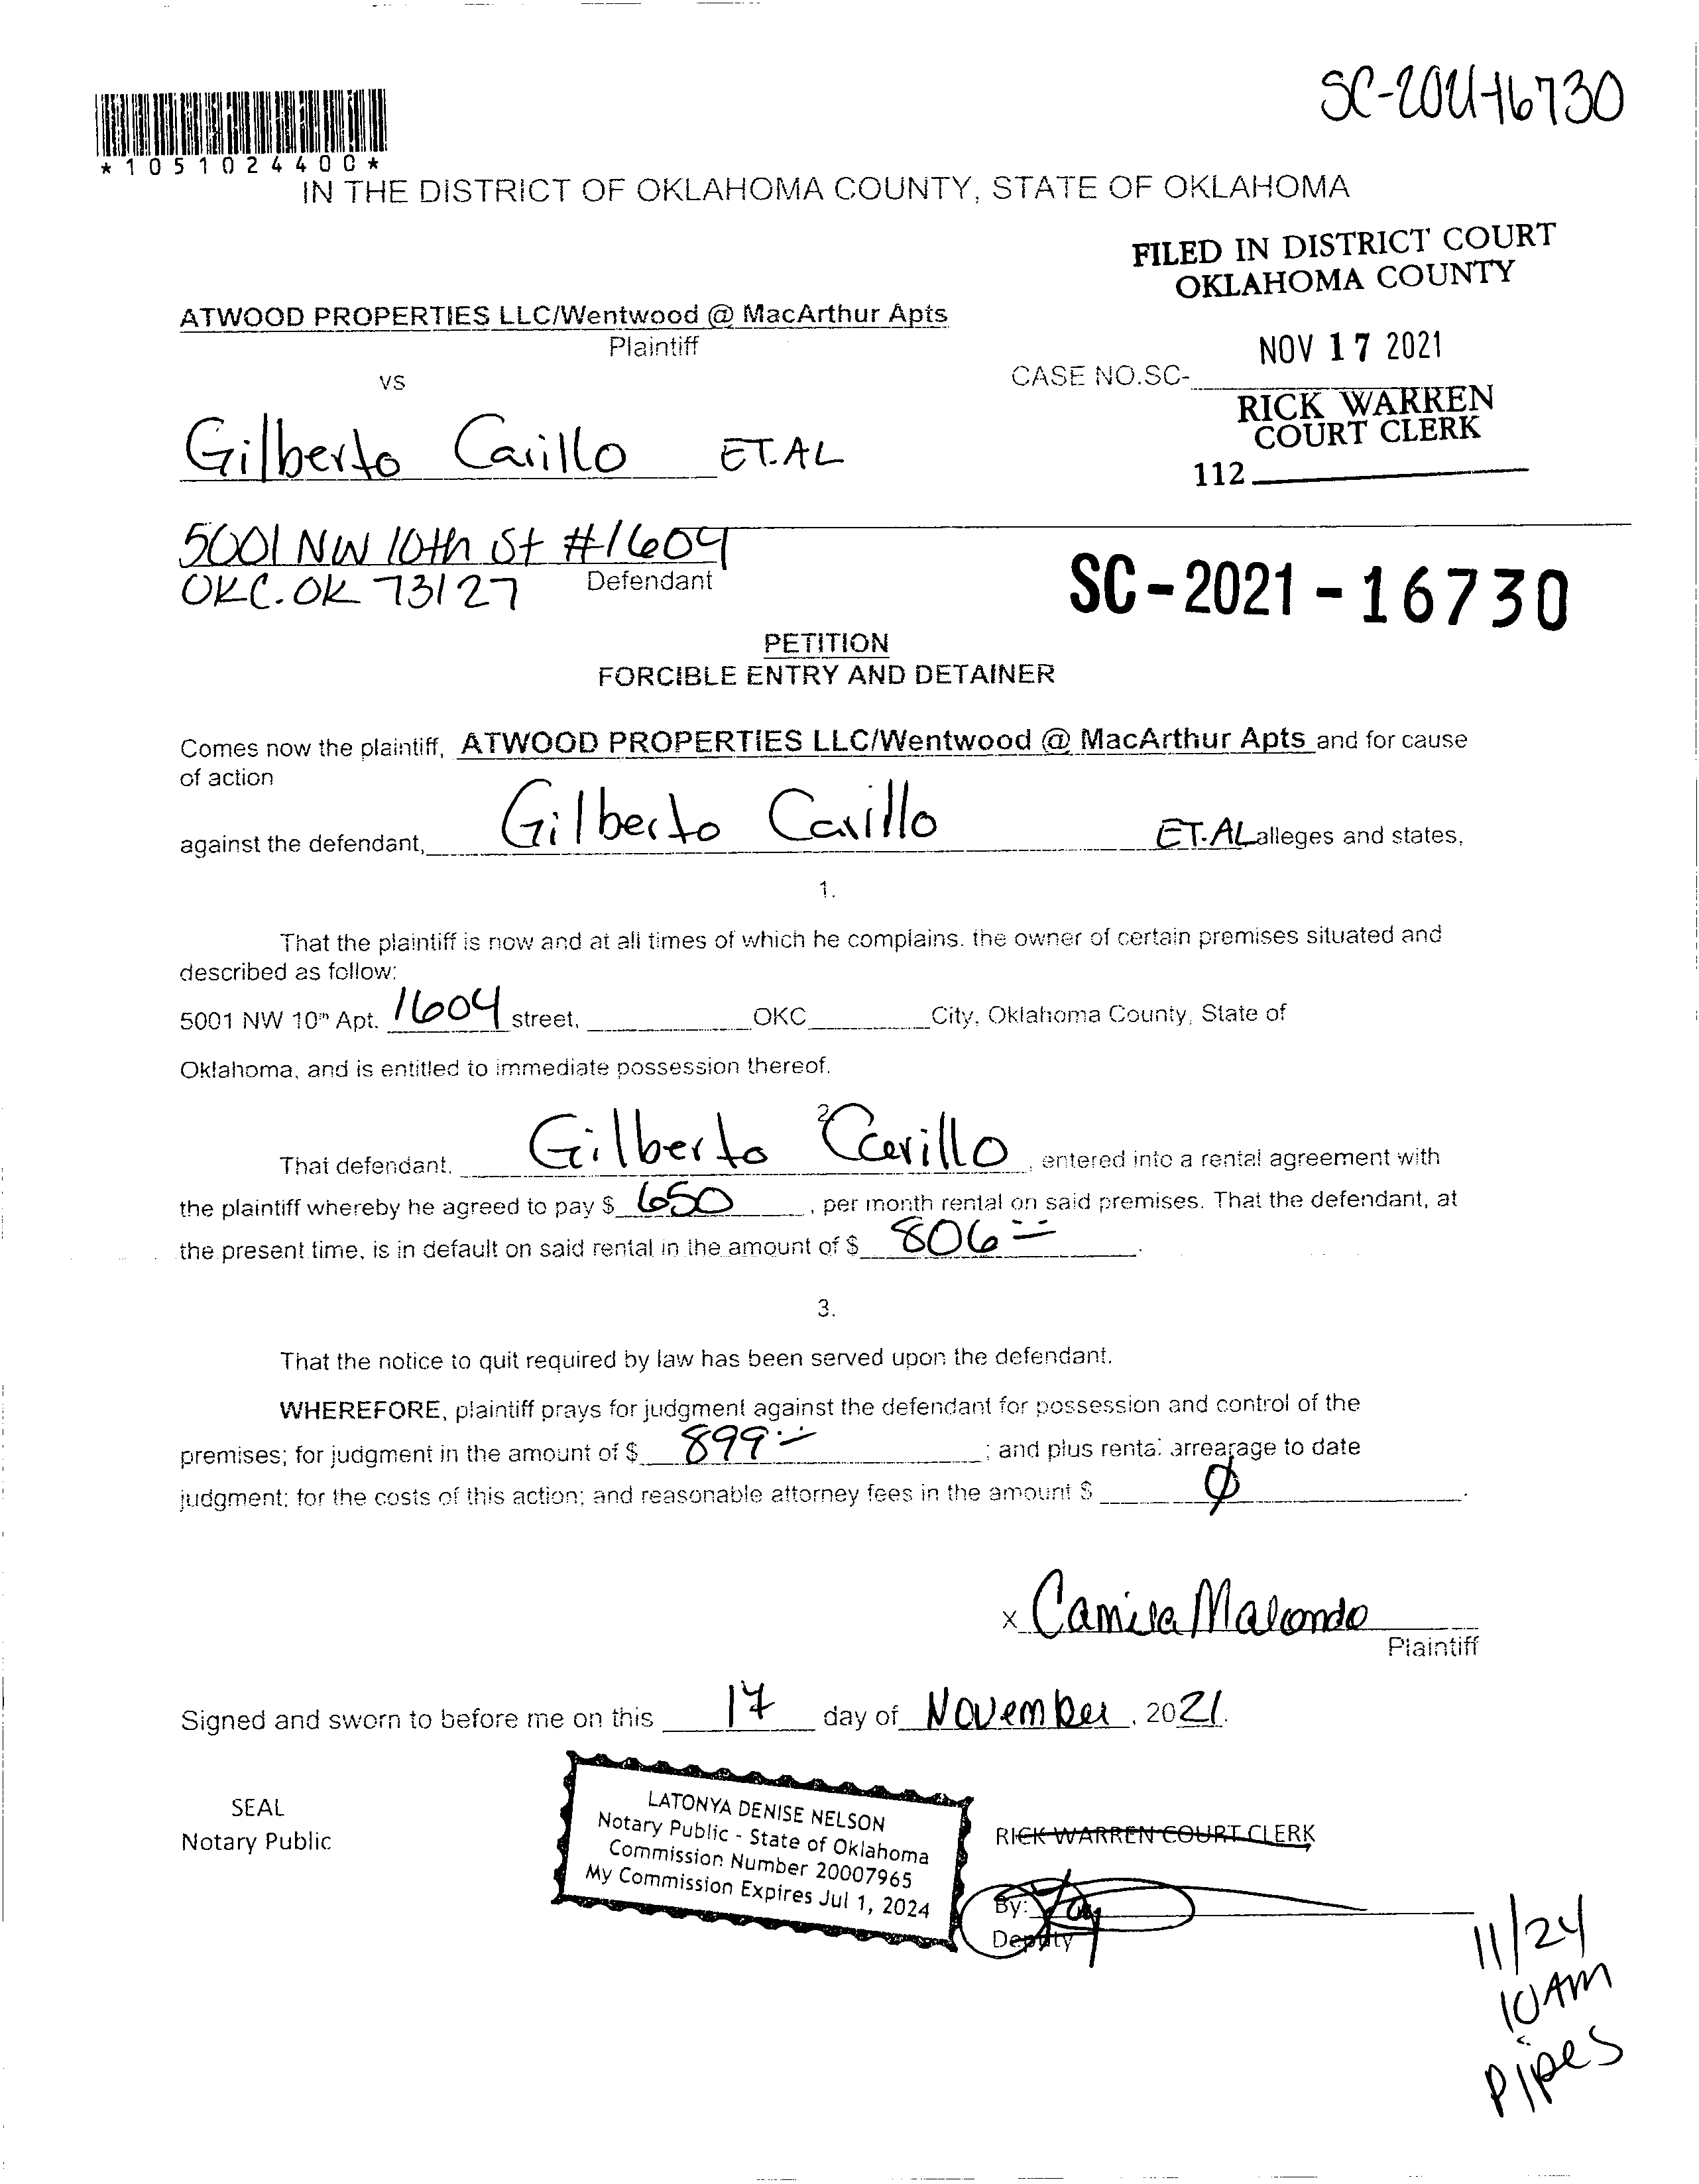 SC-2021-16730
*1051024400*
IN THE DISTRICT OF OKLAHOMA COUNTY, STATE OF OKLAHOMA
FILED IN DISTRICT COURT
OKLAHOMA COUNTY
ATWOOD PROPERTIES LLC/Wentwood @ MacArthur Apts
Plaintiff
NOV 17 2021
vs
CASE NO.SC-
RICK WARREN
COURT CLERK
Gilberto Carillo ET.AL
112
5001 NW 10th St #1604
OKC. OK 73127 Defendant
SC-2021-16730
PETITION
FORCIBLE ENTRY AND DETAINER
Comes now the plaintiff, ATWOOD PROPERTIES LLC/Wentwood @ MacArthur Apts and for cause
of action
against the defendant, Gilberto Carillo ET.AL alleges and states,
1.
That the plaintiff is now and at all times of which he complains. the owner of certain premises situated and
described as follow:
5001 NW 10th Apt. 1604 street, OKC City, Oklahoma County, State of
Oklahoma, and is entitled to immediate possession thereof.
2.
That defendant, Gilberto Carillo, entered into a rental agreement with
the plaintiff whereby he agreed to pay $ 650, per month rental on said premises. That the defendant, at
the present time, is in default on said rental in the amount of $ 806.
3.
That the notice to quit required by law has been served upon the defendant.
WHEREFORE, plaintiff prays for judgment against the defendant for possession and control of the
premises; for judgment in the amount of $ 899; and plus rental arrearage to date
judgment; for the costs of this action; and reasonable attorney fees in the amount $ Ø.
x Camila
Plaintiff
Signed and sworn to before me on this 17 day of November, 2021.
SEAL
Notary Public
LATONYA DENISE NELSON
Notary Public - State of Oklahoma
Commission Number 20007965
My Commission Expires Jul 1, 2024
RICK WARREN COURT CLERK
By:
Deputy
11/24
10AM
Pipes